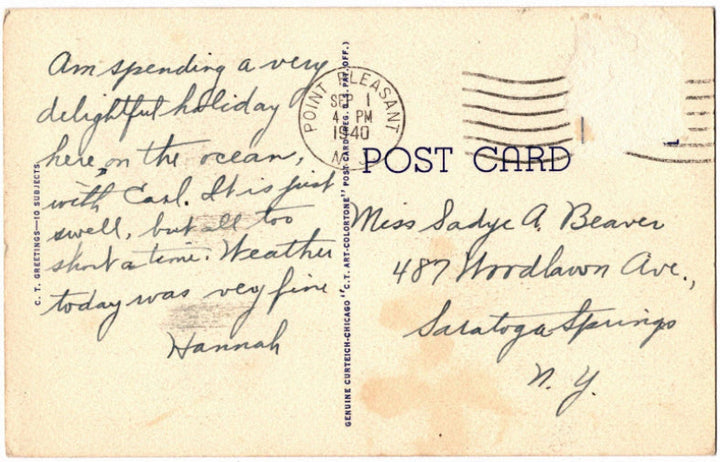 Am spending a very
delightful holiday
here on the ocean,
with Earl. It is just
swell, but all too
short a time. Weather
today was very fine
Hannah
C. T. GREETINGS—10 SUBJECTS
GENUINE CURTEICH-CHICAGO "C. T. ART-COLORTONE" POST CARD (REG. U.S. PAT. OFF.)
POINT PLEASANT
SEP 1
4 PM
1940
N. J.
POST CARD
Miss Sadye A. Beaver
487 Woodlawn Ave.,
Saratoga Springs
N. Y.